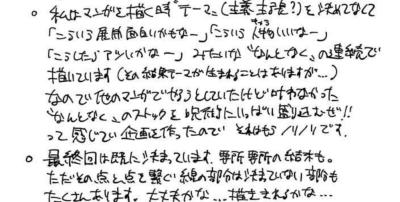 。私はマンガを描く時"テーマ"(主義主張?)を決めてなくて
「こういう展開面白いかもなー」「こういう人物いいなー」
「こうしたらアツいかなー」みたいな"なんとなく"の連続で
描いています(その結果テーマが生まれることはありますが…)
なので他のマンガでやろうとしていたけど叶わなかった
"なんとなく"のストックを呪術にいっぱい盛り込むぜ!!
って感じでい企画を作ったので それはもうノリノリです。
。最終回は既に決まっています。要所要所の結末も。
ただその点と点を繋ぐ線の部分は決まっていない部分も
たくさんあります。大丈夫かな…描ききれるかな…